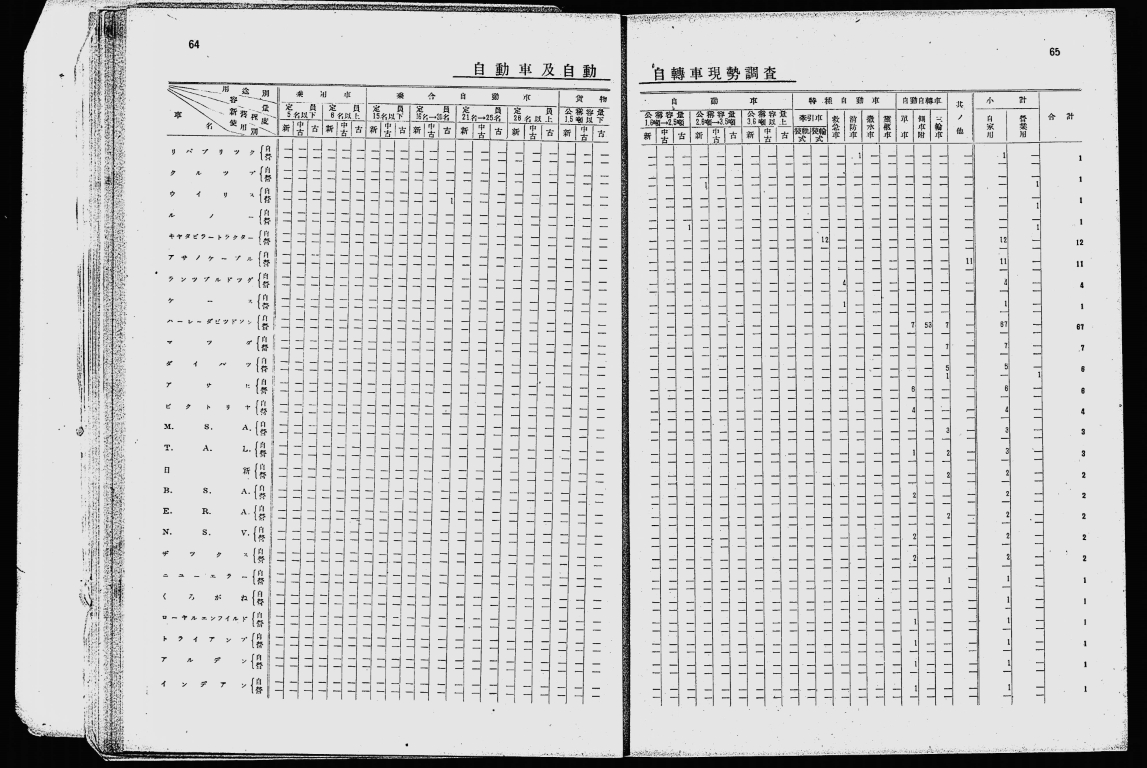 64
自動車及自動
用途別
容量
新舊程度
使用別
車名
乗用車 乗合自動車 貨物
定員5名以下 定員6名以上 定員15名以下 定員16名→20名 定員21名→25名 定員26名以上 公稱容量1.5噸以下
新 中古 古 新 中古 古 新 中古 古 新 中古 古 新 中古 古 新 中古 古 新 中古 古
リパブリック 自 營
クルップ 自 營
ウイリス 自 營 1
ルノー 自 營
キャタピラートラクター 自 營
アサノケーブル 自 營
ランツブルドッグ 自 營
ケース 自 營
ハーレーダビツドソン 自 營
マツダ 自 營
ダイハツ 自 營
アサヒ 自 營
ビクトリヤ 自 營
M. S. A. 自 營
T. A. L. 自 營
日新 自 營
B. S. A. 自 營
E. R. A. 自 營
N. S. V. 自 營
ザックス 自 營
ニューエラー 自 營
くろがね 自 營
ローヤルエンフイルド 自 營
トライアンフ 自 營
アルデン 自 營
インデアン 自 營
65
自轉車現勢調査
自動車 特種自動車 自動自轉車 其ノ他 小計 合計
公稱容量 公稱容量 公稱容量以上 牽引車 救急車 消防車 撒水車 靈柩車 單車 側車附 三輪車 自家用 營業用
新 中古 古 新 中古 古 新 中古 古
1 1 1
1 1 1
1 1
1 1 1
12 12 12
11 11 11
4 4 4
1 1 1
7 53 7 67 67
7 7 7
5 5
1 1 6
6 6 6
4 4 4
3 3 3
1 2 3 3
2 2 2
2 2 2
2 2 2
2 2 2
2 2 2
1 1 1
1 1
1 1 1
1 1 1
1 1 1
1 1 1